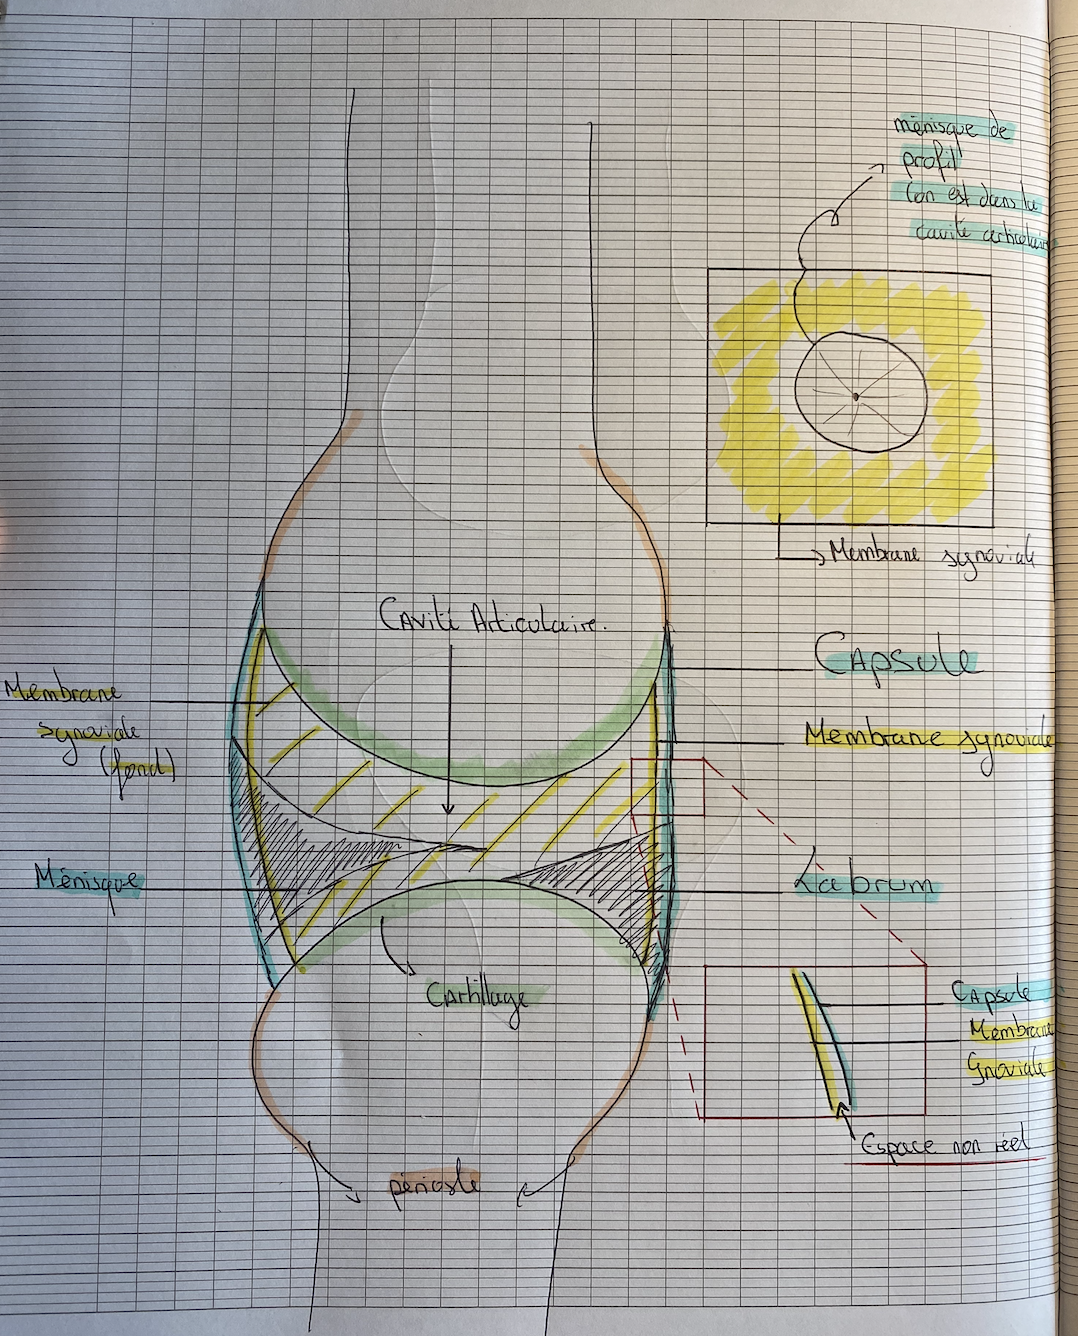 ménisque de
profil
(on est dans la
cavité articulaire
Membrane synoviale
Cavité Articulaire.
Capsule
Membrane
synoviale
(fond)
Membrane synoviale
Ménisque
Labrum
Cartillage
Capsule
Membrane
Synoviale
Espace non réel
périoste